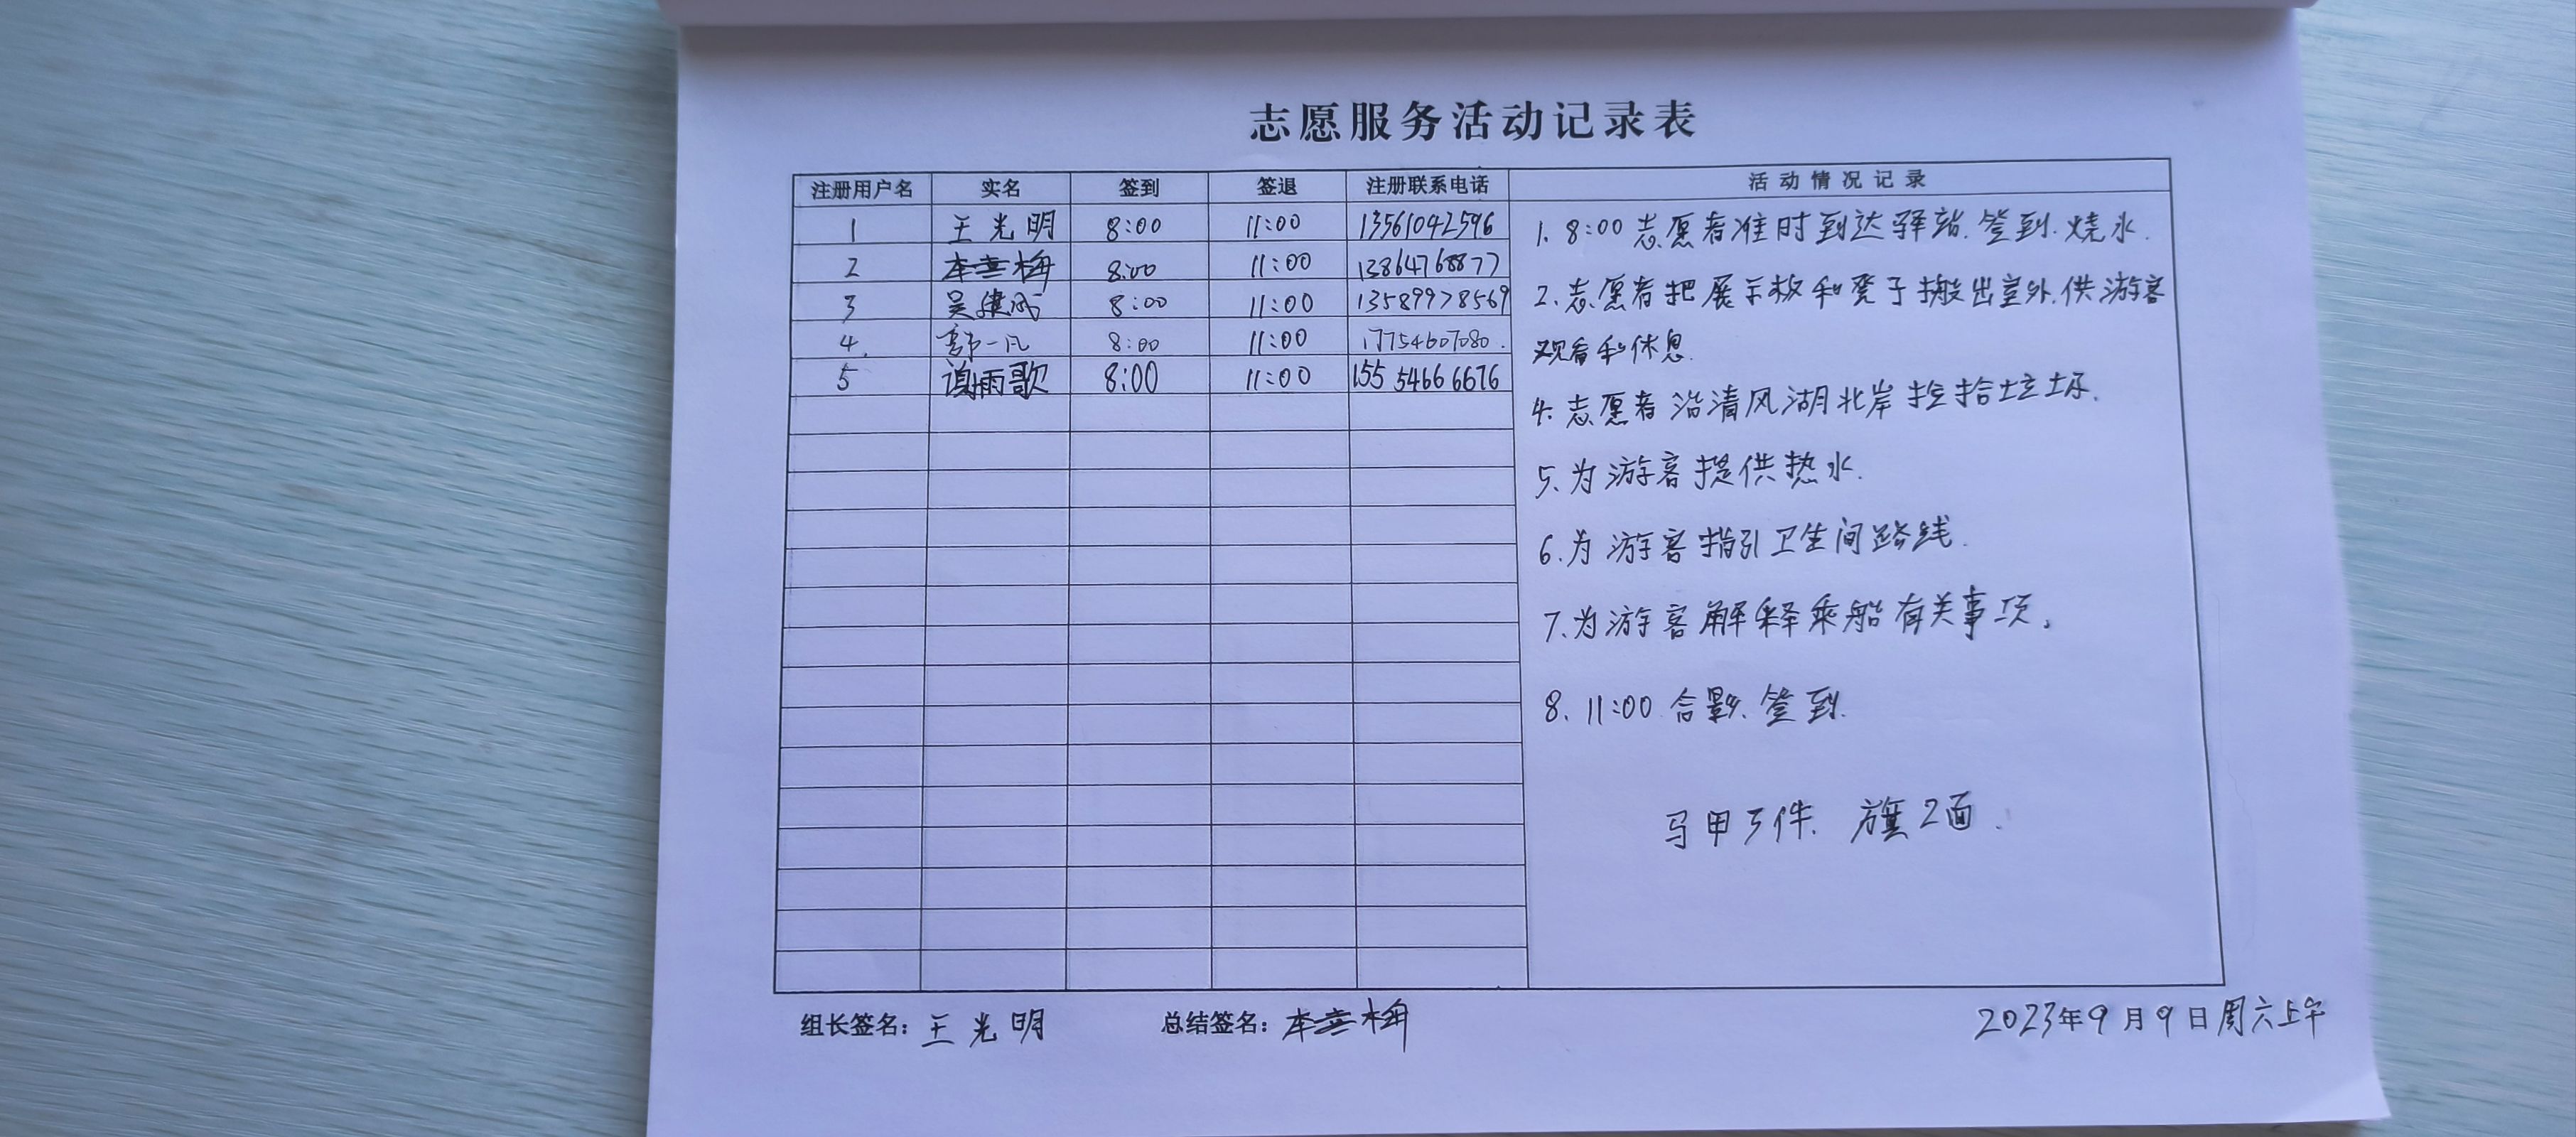 志愿服务活动记录表
注册用户名 实名 签到 签退 注册联系电话 活动情况记录
1 王光明 8:00 11:00 13561042596
2 梅 8:00 11:00 13864768877
3 吴建成 8:00 11:00 13589978569
4. 郭一凡 8:00 11:00 17754607080.
5 谢雨歌 8:00 11:00 155 5466 6676
1. 8:00 志愿者准时到达驿站.签到.烧水.
2.志愿者把展示板和凳子搬出室外.供游客
观看和休息.
4.志愿者沿清风湖北岸捡拾垃圾.
5.为游客提供热水.
6.为游客指引卫生间路线.
7.为游客解释乘船有关事项。
8. 11:00 合影.签到.
马甲5件. 旗2面.
组长签名：王光明 总结签名：梅 2023年9月9日周六上午